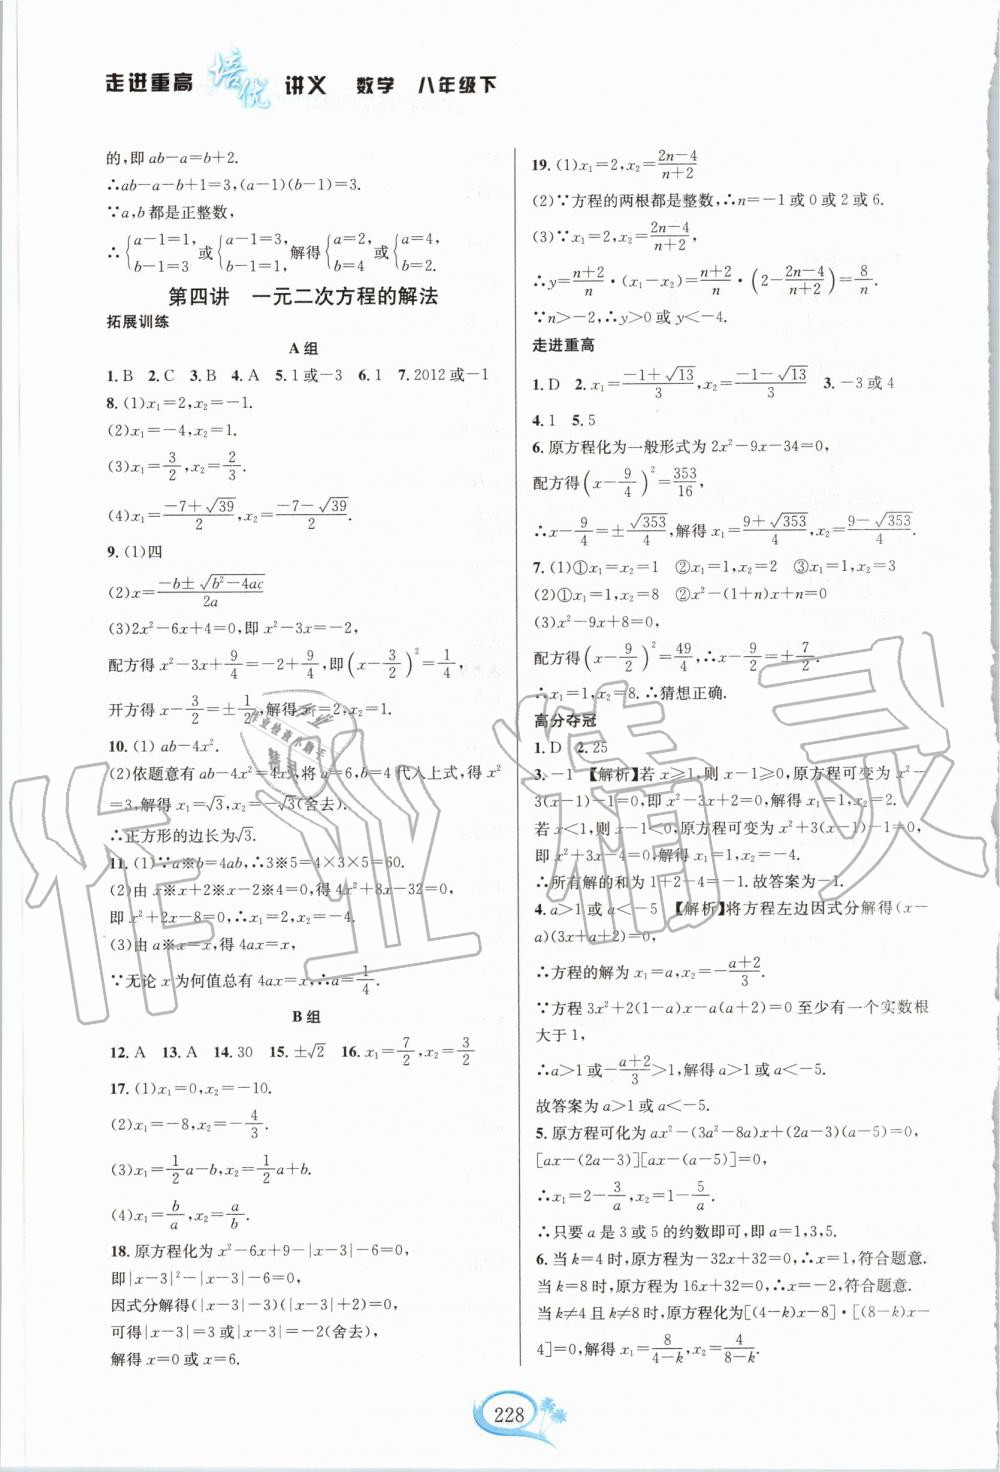 走进重高 培优 讲义 数学 八年级下
的,即 ab－a=b+2.
∴ab－a－b+1=3,(a－1)(b－1)=3.
∵a,b 都是正整数,
∴{a－1=1, b－1=3 或{a－1=3, b－1=1, 解得{a=2, b=4 或{a=4, b=2.
第四讲 一元二次方程的解法
拓展训练
A 组
1. B 2. C 3. B 4. A 5. 1 或－3 6. 1 7. 2012 或－1
8. (1)x₁=2,x₂=－1.
(2)x₁=－4,x₂=1.
(3)x₁=3/2,x₂=2/3.
(4)x₁=(－7+√39)/2,x₂=(－7－√39)/2.
9. (1)四
(2)x=(－b±√(b²－4ac))/2a
(3)2x²－6x+4=0,即 x²－3x=－2,
配方得 x²－3x+9/4=－2+9/4,即(x－3/2)²=1/4,
开方得 x－3/2=±1/2,解得x₁=2,x₂=1.
10. (1) ab－4x².
(2)依题意有 ab－4x²=4x²,将 a=6,b=4 代入上式,得 x²
=3,解得 x₁=√3,x₂=－√3(舍去).
∴正方形的边长为√3.
11. (1)∵a※b=4ab,∴3※5=4×3×5=60.
(2)由 x※x+2※x－2※4=0,得 4x²+8x－32=0,
即 x²+2x－8=0,∴x₁=2,x₂=－4.
(3)由 a※x=x,得 4ax=x,
∵无论 x 为何值总有 4ax=x,∴a=1/4.
B 组
12. A 13. A 14. 30 15. ±√2 16. x₁=7/2,x₂=3/2
17. (1)x₁=0,x₂=－10.
(2)x₁=－8,x₂=－4/3.
(3)x₁=1/2a－b,x₂=1/2a+b.
(4)x₁=b/a,x₂=a/b.
18. 原方程化为 x²－6x+9－|x－3|－6=0,
即|x－3|²－|x－3|－6=0,
因式分解得(|x－3|－3)(|x－3|+2)=0,
可得|x－3|=3 或|x－3|=－2(舍去),
解得 x=0 或 x=6.
19. (1)x₁=2,x₂=(2n－4)/(n+2)
(2)∵方程的两根都是整数,∴n=－1 或 0 或 2 或 6.
(3)∵x₁=2,x₂=(2n－4)/(n+2),
∴y=(n+2)/n·(x₁－x₂)=(n+2)/n·(2－(2n－4)/(n+2))=8/n.
∵n>－2,∴y>0 或 y<－4.
走进重高
1. D 2. x₁=(－1+√13)/3,x₂=(－1－√13)/3 3. －3 或 4
4. 1 5. 5
6. 原方程化为一般形式为 2x²－9x－34=0,
配方得(x－9/4)²=353/16,
∴x－9/4=±√353/4,解得 x₁=(9+√353)/4,x₂=(9－√353)/4.
7. (1)①x₁=x₂=1 ②x₁=1,x₂=2 ③x₁=1,x₂=3
(2)①x₁=1,x₂=8 ②x²－(1+n)x+n=0
(3)x²－9x+8=0,
配方得(x－9/2)²=49/4,∴x－9/2=±7/2.
∴x₁=1,x₂=8. ∴猜想正确.
高分夺冠
1. D 2. 25
3. －1 【解析】若 x≥1,则 x－1≥0,原方程可变为 x²－
3(x－1)－1=0,即 x²－3x+2=0,解得 x₁=1,x₂=2.
若 x<1,则 x－1<0,原方程可变为 x²+3(x－1)－1=0,
即 x²+3x－4=0,解得 x₁=1(舍去),x₂=－4.
∴所有解的和为 1+2－4=－1. 故答案为－1.
4. a>1 或 a<－5 【解析】将方程左边因式分解得(x－
a)(3x+a+2)=0,
∴方程的解为 x₁=a,x₂=－(a+2)/3.
∵方程 3x²+2(1－a)x－a(a+2)=0 至少有一个实数根
大于 1,
∴a>1 或－(a+2)/3>1,解得 a>1 或 a<－5.
故答案为 a>1 或 a<－5.
5. 原方程可化为 ax²－(3a²－8a)x+(2a－3)(a－5)=0,
[ax－(2a－3)][ax－(a－5)]=0,
∴x₁=2－3/a,x₂=1－5/a.
∴只要 a 是 3 或 5 的约数即可,即 a=1,3,5.
6. 当 k=4 时,原方程为－32x+32=0,∴x=1,符合题意.
当 k=8 时,原方程为 16x+32=0,∴x=－2,符合题意.
当 k≠4 且 k≠8 时,原方程化为[(4－k)x－8]·[(8－k)x－
4]=0,解得 x₁=8/(4－k),x₂=4/(8－k).
228
作业精灵